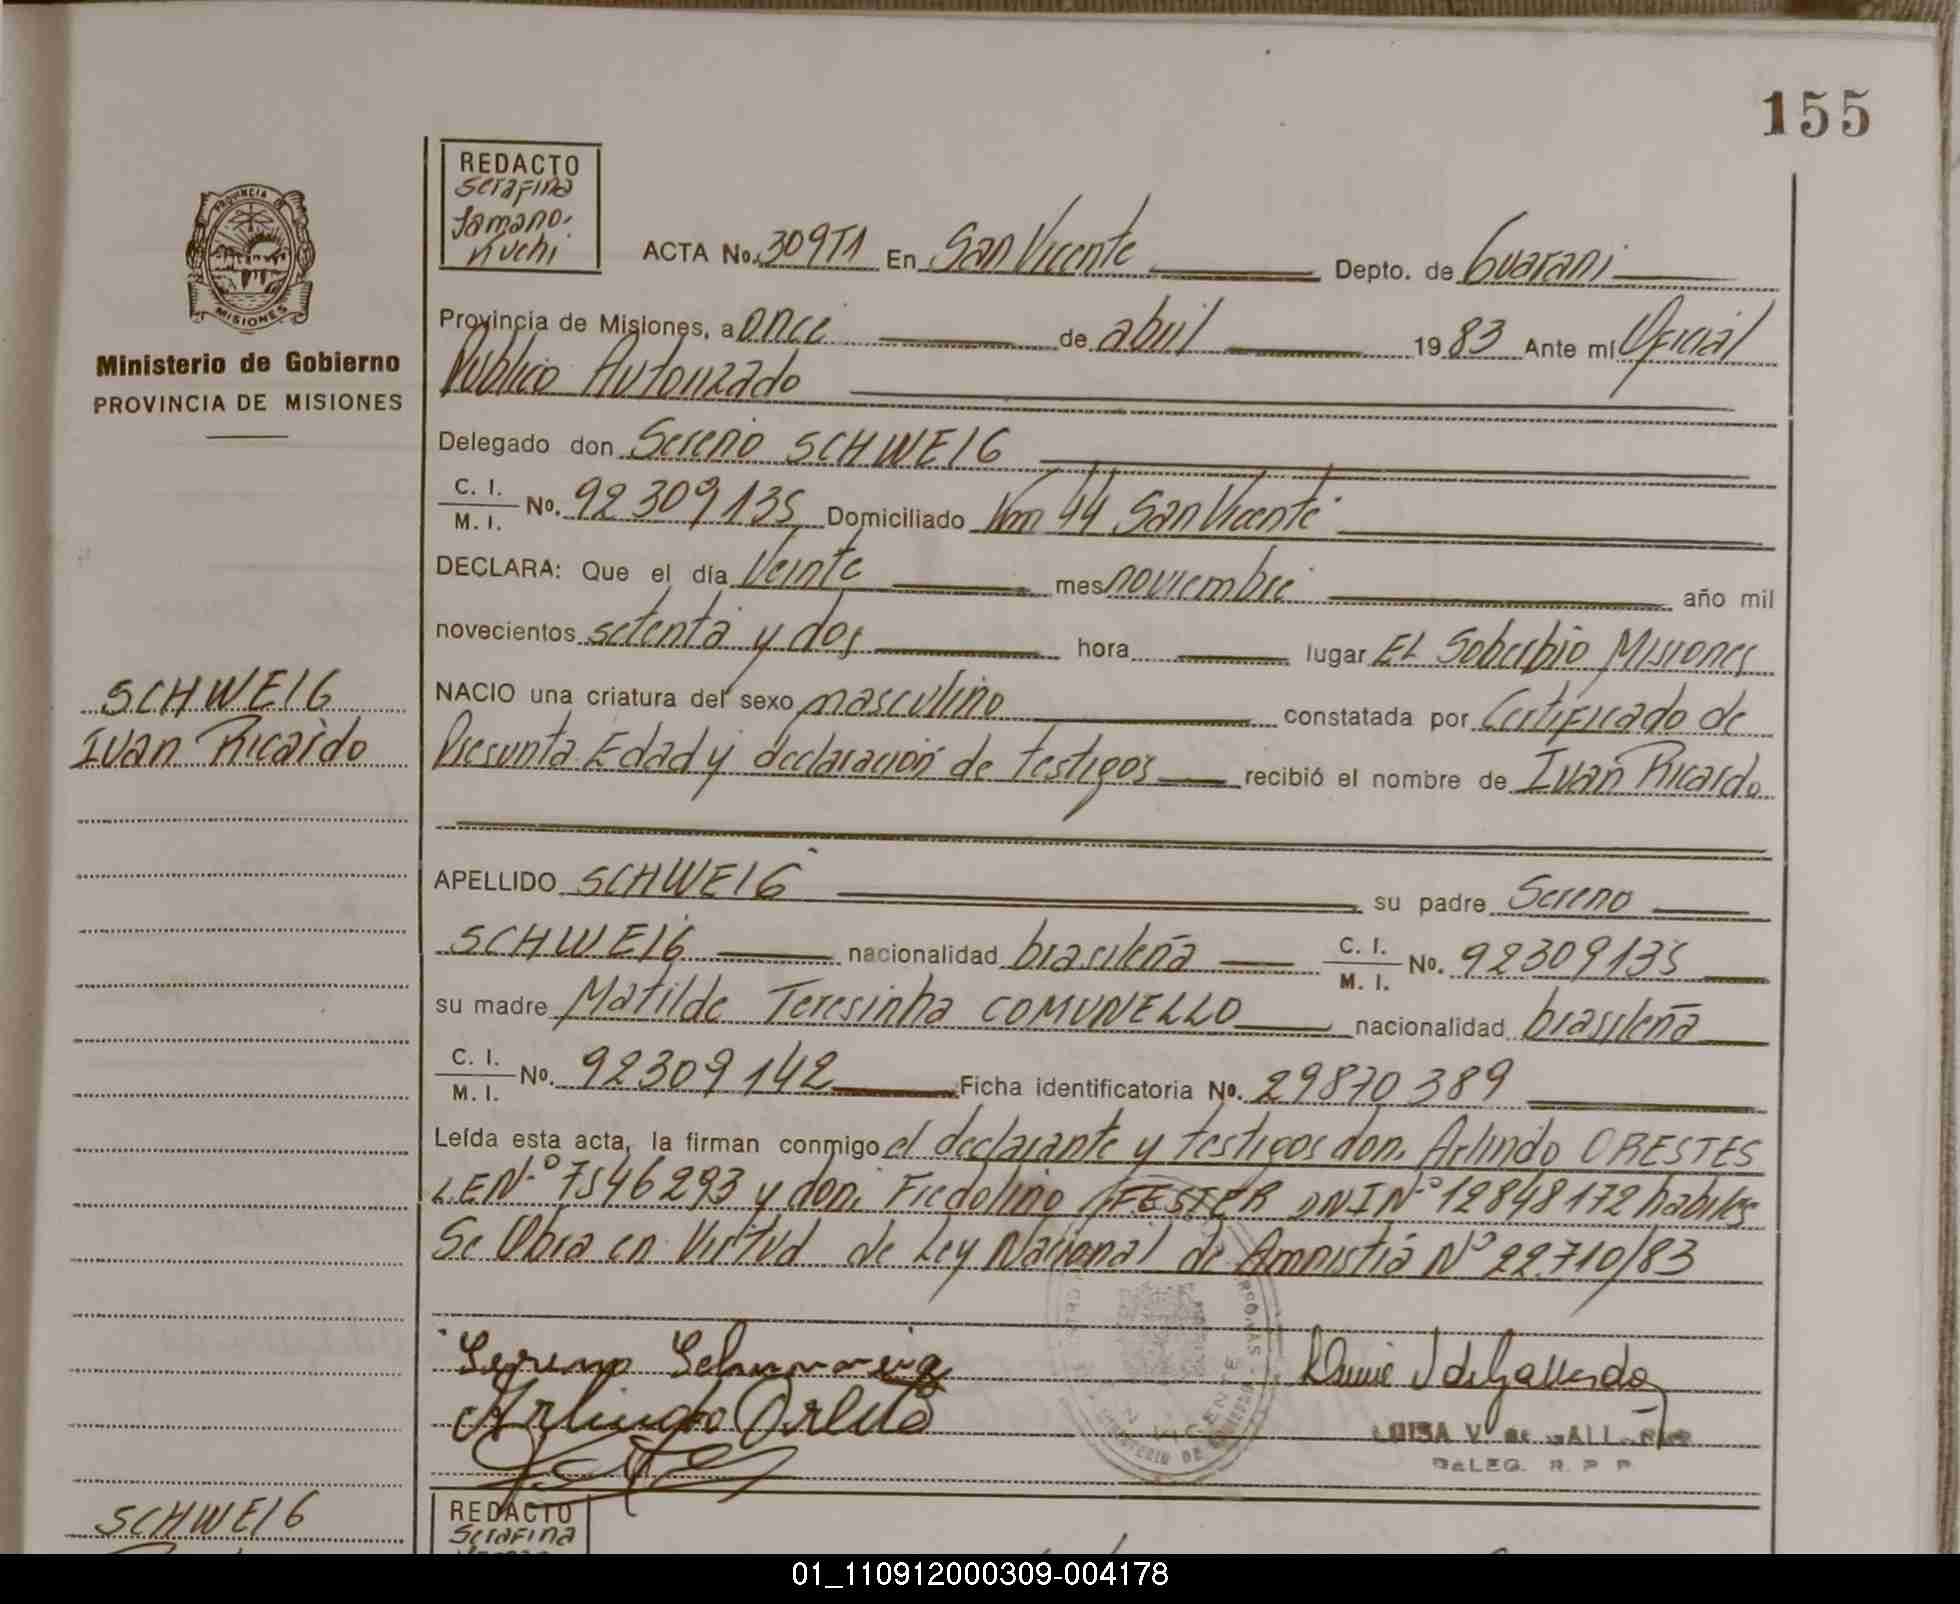 155
REDACTO
Serafina
Jamano.
nuchi
PROVINCIA DE
MISIONES
Ministerio de Gobierno
PROVINCIA DE MISIONES
ACTA No. 309T1 En San Vicente Depto. de Guarani
Provincia de Misiones, a once de abril 1983 Ante mí Oficial
Público Autorizado
Delegado don Sereno SCHWEIG
C. I. / M. I. No. 92309135 Domiciliado Km 44 San Vicente
DECLARA: Que el día Veinte mes noviembre año mil
novecientos setenta y dos hora lugar EL Soberbio Misiones
NACIO una criatura del sexo masculino constatada por Certificado de
Presunta Edad y declaración de testigos recibió el nombre de Ivan Ricardo
SCHWEIG
Ivan Ricardo
APELLIDO SCHWEIG su padre Sereno
SCHWEIG nacionalidad brasileña C. I. / M. I. No. 92309135
su madre Matilde Teresinha COMUNELLO nacionalidad brasileña
C. I. / M. I. No. 92309142 Ficha identificatoria No. 29870389
Leída esta acta, la firman conmigo el declarante y testigos don. Arlindo ORESTES
L.E.Nº 7546293 y don: Fredolino FESTER DNI Nº 12848172 habiles
Se Obra en Virtud de Ley Nacional de Amnistía Nº 22.710/83
Sereno Schweig
Arlindo
LUISA V. de GALL
DELEG. R. P. P.
SCHWEIG
REDACTO
Serafina
01_110912000309-004178